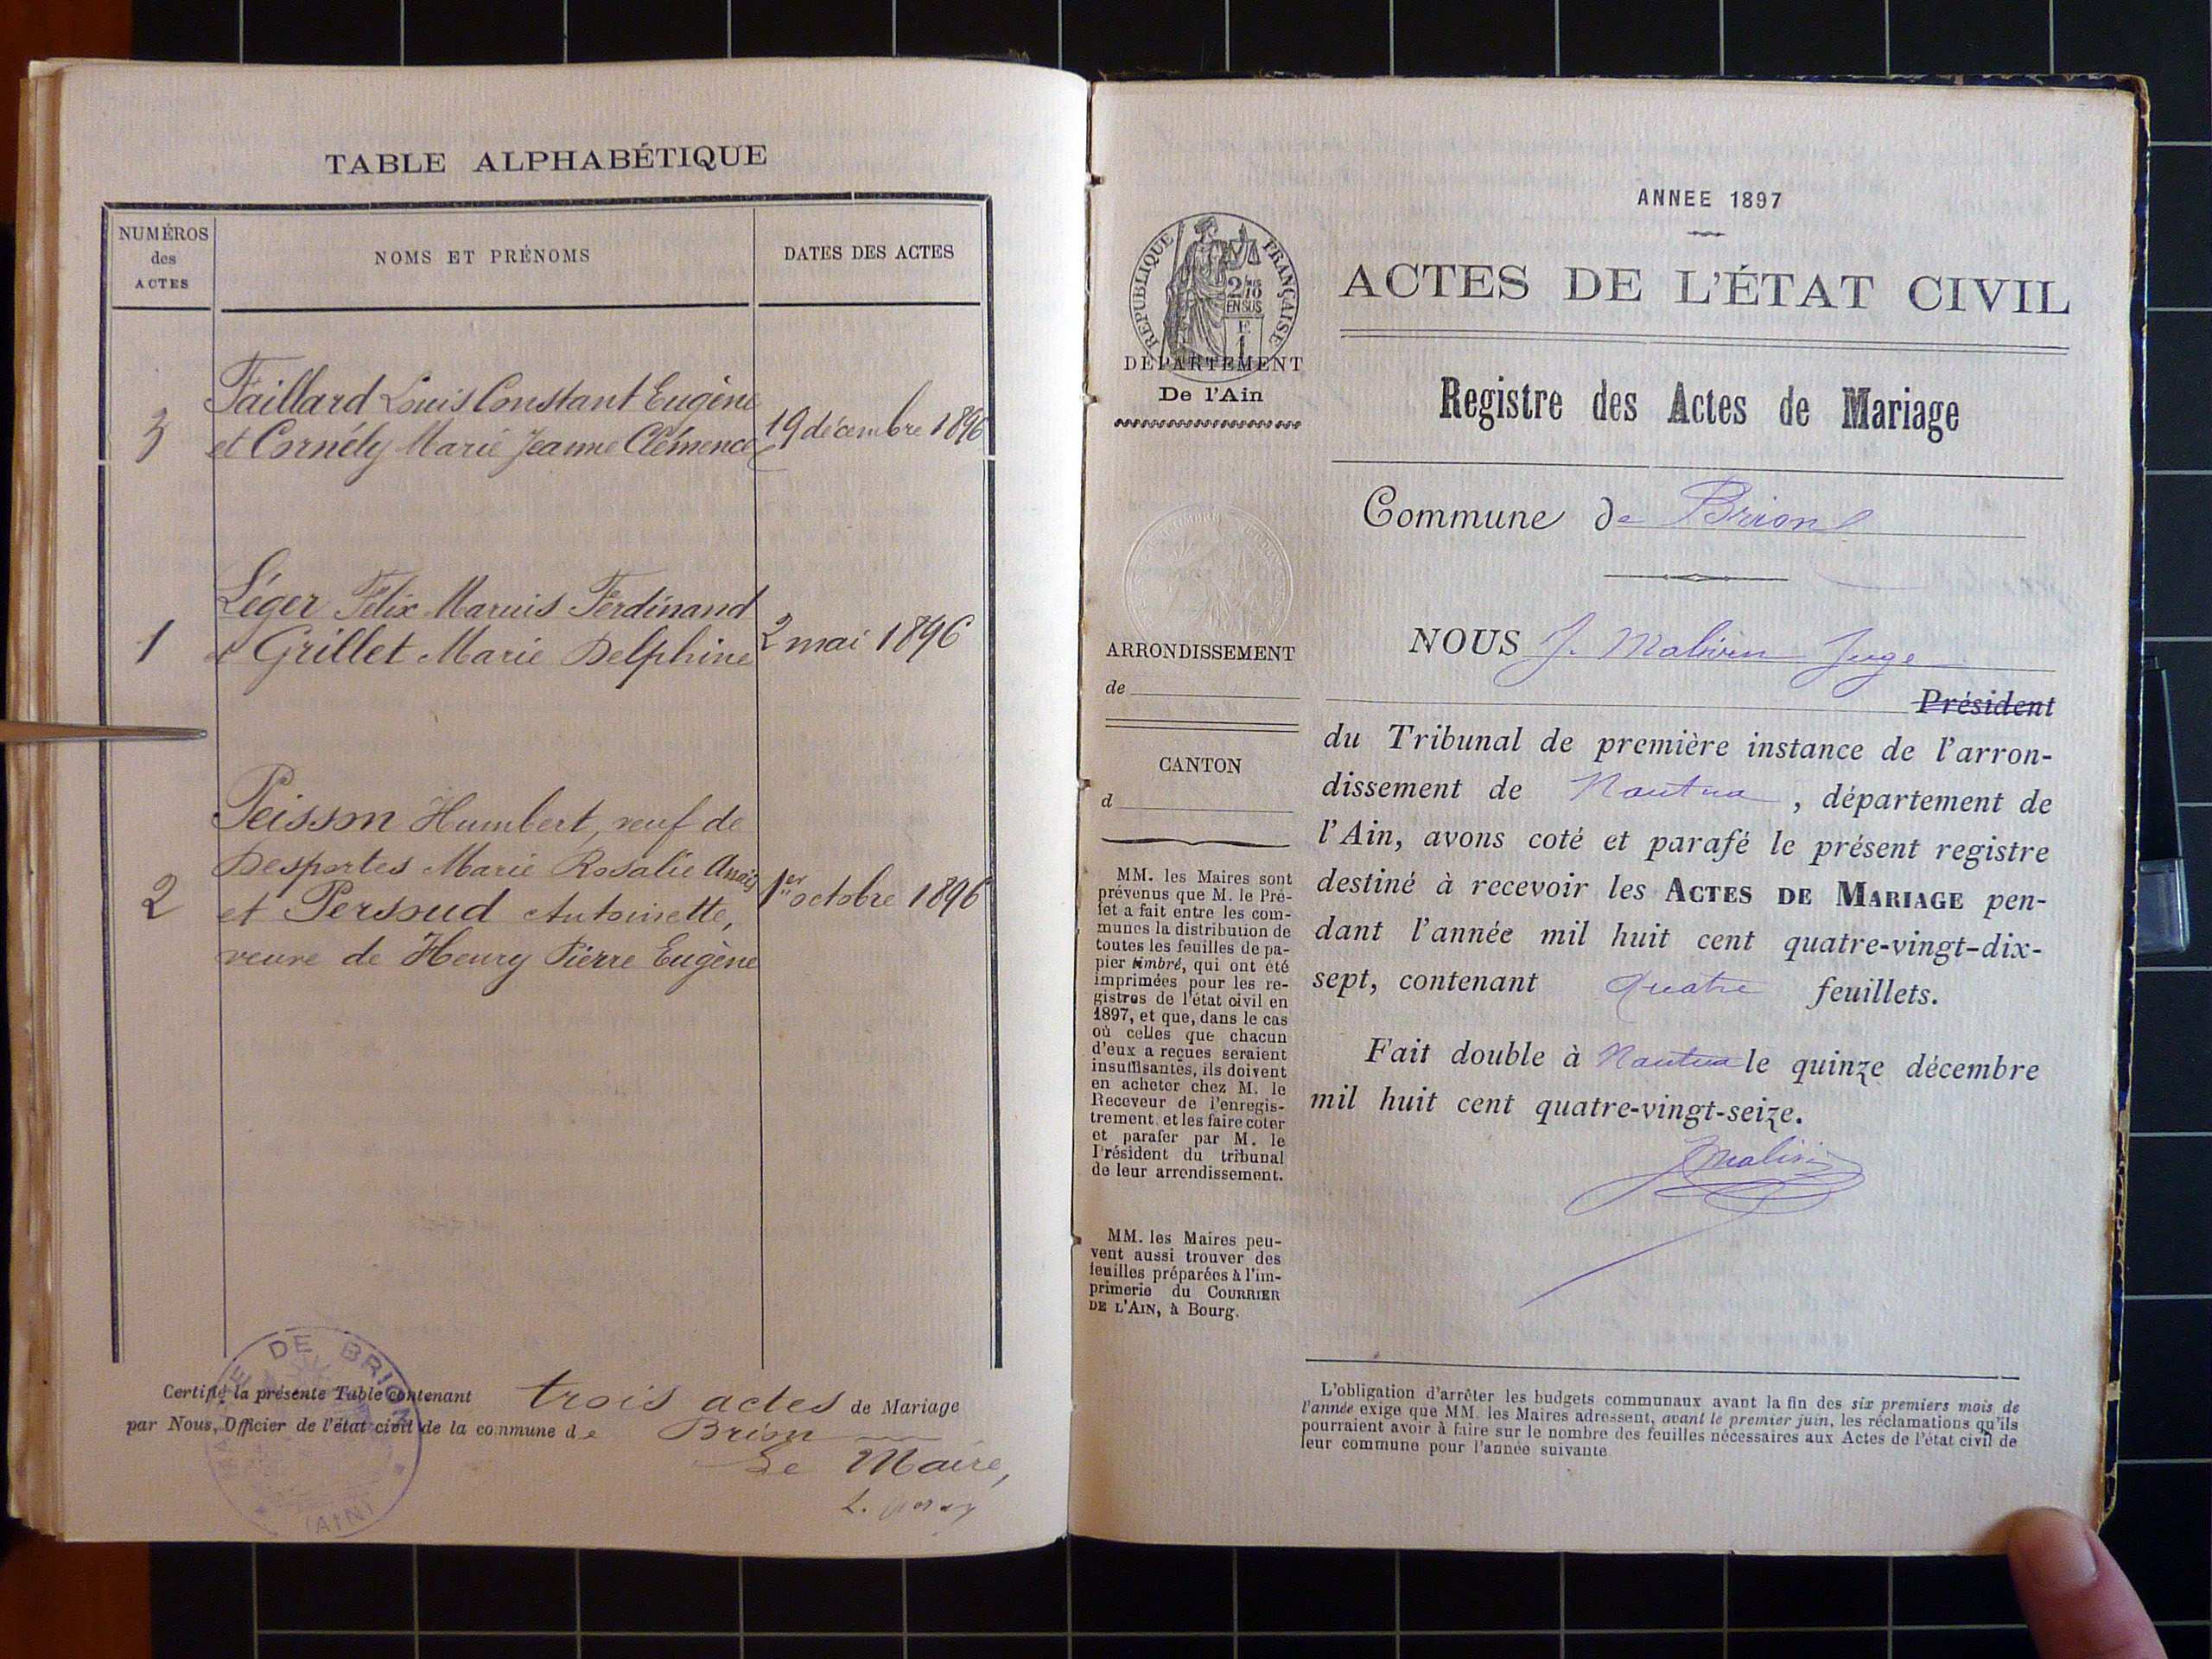 TABLE ALPHABÉTIQUE
NUMÉROS
des
ACTES
NOMS ET PRÉNOMS
DATES DES ACTES
3
Faillard Louis Constant Eugène
et Cornély Marie Jeanne Clémence
19 décembre 1896
1
Léger Félix Maruis Ferdinand
et Grillet Marie Delphine
2 mai 1896
2
Peisson Humbert, veuf de
Desportes Marie Rosalie Anaïs
et Persoud Antoinette,
veuve de Henry Pierre Eugène
1er octobre 1896
Certifié la présente Table contenant trois actes de Mariage
par Nous, Officier de l'état civil de la commune de Brion
Le Maire,
DE BRION
(AIN)
ANNEE 1897
RÉPUBLIQUE FRANÇAISE
2/10
EN SUS
ACTES DE L'ÉTAT CIVIL
DÉPARTEMENT
De l'Ain
Registre des Actes de Mariage
Commune de Brion
ARRONDISSEMENT
de
CANTON
d
MM. les Maires sont
prévenus que M. le Pré-
fet a fait entre les com-
munes la distribution de
toutes les feuilles de pa-
pier timbré, qui ont été
imprimées pour les re-
gistres de l'état civil en
1897, et que, dans le cas
où celles que chacun
d'eux a reçues seraient
insuffisantes, ils doivent
en acheter chez M. le
Receveur de l'enregis-
trement, et les faire coter
et parafer par M. le
Président du tribunal
de leur arrondissement.
MM. les Maires peu-
vent aussi trouver des
feuilles préparées à l'im-
primerie du COURRIER
DE L'AIN, à Bourg.
NOUS J. Malivin Juge
Président
du Tribunal de première instance de l'arron-
dissement de Nantua, département de
l'Ain, avons coté et parafé le présent registre
destiné à recevoir les ACTES DE MARIAGE pen-
dant l'année mil huit cent quatre-vingt-dix-
sept, contenant quatre feuillets.
Fait double à Nantua le quinze décembre
mil huit cent quatre-vingt-seize.
L'obligation d'arrêter les budgets communaux avant la fin des six premiers mois de
l'année exige que MM. les Maires adressent, avant le premier juin, les réclamations qu'ils
pourraient avoir à faire sur le nombre des feuilles nécessaires aux Actes de l'état civil de
leur commune pour l'année suivante